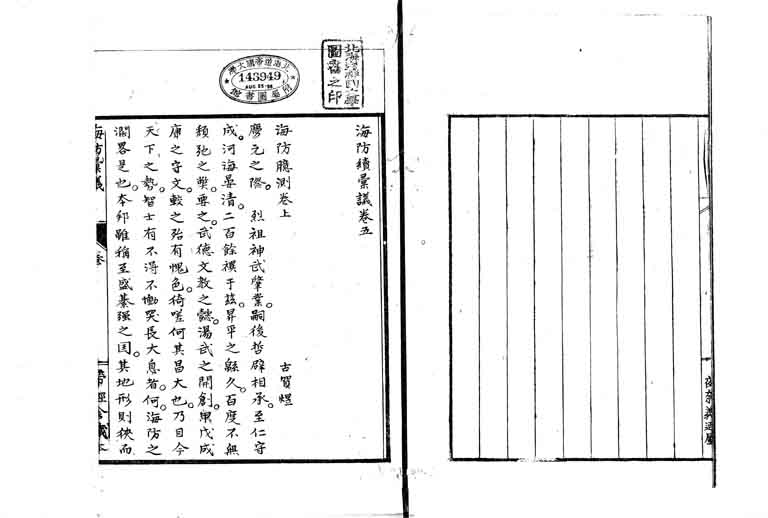 海防續彙議卷五
海防臆測卷上
古賀煜
慶元之際。烈祖神武肇業。嗣後哲辟相承。至仁守
成。河海晏清。二百餘禩于茲。昇平之緜久。百度不無
頽弛之獘。要之武德文教之懿。湯武之開創。甲戊成
康之守文。較之殆有愧色。猗嗟何其昌大也。乃目今
天下之勢。智士有不得不慟哭長大息者。何。海防之
濶畧是也。本邦雖稱至盛綦强之国。其地形則狹而
海防彙議
北海道帝國大學
143949
附屬圖書館
圖書之印